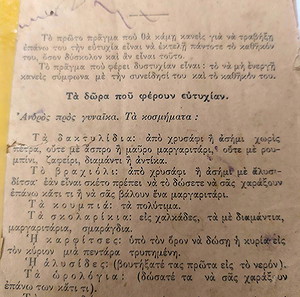 Τὸ πρῶτο πρᾶγμα ποὺ θὰ κάμῃ κανεὶς γιὰ νὰ τραβήξῃ
ἐπάνω του τὴν εὐτυχία εἶναι νὰ ἐκτελῇ πάντοτε τὸ καθῆκόν
του, ὅσον δύσκολον καὶ ἂν εἶναι τοῦτο.
Τὸ πρᾶγμα ποὺ φέρει δυστυχίαν εἶναι: τὸ νὰ μὴ ἐνεργῇ
κανεὶς σύμφωνα μὲ τὴν συνείδησί του καὶ τὸ καθῆκόν του.
Τὰ δῶρα ποῦ φέρουν εὐτυχίαν.
Ἀνδρὸς πρὸς γυναῖκα. Τὰ κοσμήματα:
Τὰ δακτυλίδια: ἀπὸ χρυσάφι ἢ ἀσήμι χωρὶς
πέτρα, οὔτε μὲ ἄσπρο ἢ μαῦρο μαργαριτάρι, οὔτε μὲ ρουμ-
πίνι, ζαφείρι, διαμάντι ἢ ἀντίκα.
Τὸ βραχιόλι: ἀπὸ χρυσάφι ἢ ἀσήμι μὲ ἁλυσι-
δίτσα· ἐὰν εἶναι σκέτο πρέπει νὰ τὸ δώσετε νὰ σᾶς χαράξουν
ἐπάνω κάτι τι ἢ νὰ σᾶς βάλουν ἕνα μαργαριτάρι.
Τὰ κουμπιά: τὰ πολύτιμα.
Τὰ σκολαρίκια: εἰς χαλκάδες, τὰ μὲ διαμάντια,
μαργαριτάρια, σμαράγδια.
Ἡ καρφίτσες: ὑπὸ τὸν ὅρον νὰ δώσῃ ἡ κυρία εἰς
τὸν κύριον μιὰ πεντάρα τρυπημένη.
Ἡ ἁλυσίδες: (βουτήξατέ τας πρῶτα εἰς τὸ νερόν).
Τὰ ὡρολόγια: (δώσατέ τα νὰ σᾶς χαράξουν
ἐπάνω των κάτι τι).